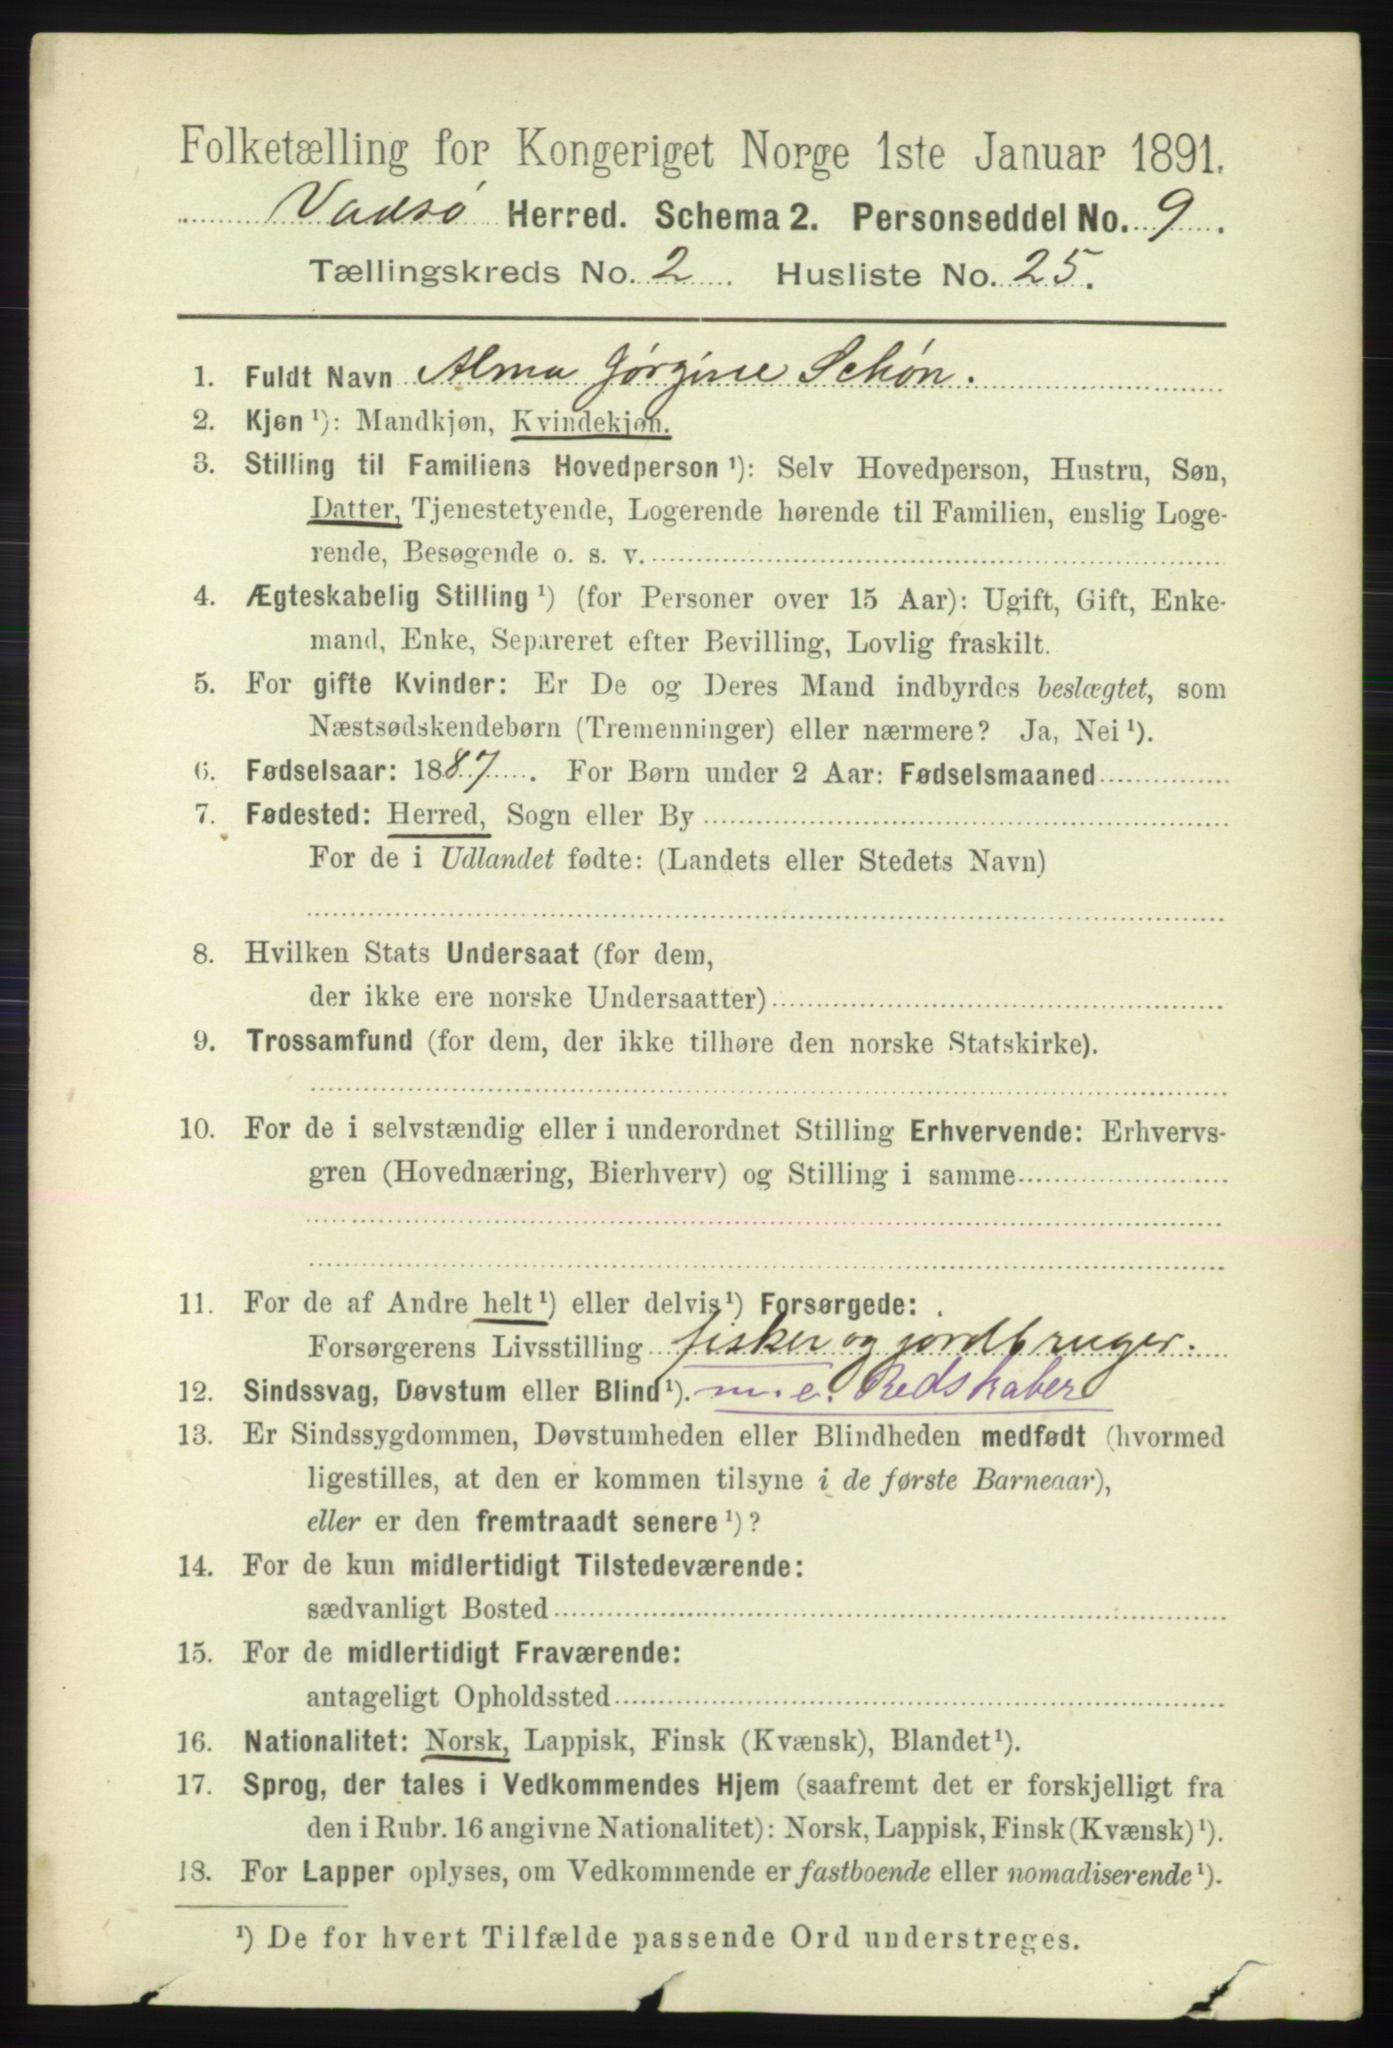 Folketælling for Kongeriget Norge 1ste Januar 1891.
Vadsø Herred. Schema 2. Personseddel No. 9.
Tællingskreds No. 2. Husliste No. 25.
1. Fuldt Navn Alma Jørgine Schøn.
2. Kjøn ¹): Mandkjøn, Kvindekjøn.
3. Stilling til Familiens Hovedperson ¹): Selv Hovedperson, Hustru, Søn,
Datter, Tjenestetyende, Logerende hørende til Familien, enslig Loge-
rende, Besøgende o. s. v.
4. Ægteskabelig Stilling ¹) (for Personer over 15 Aar): Ugift, Gift, Enke-
mand, Enke, Separeret efter Bevilling, Lovlig fraskilt.
5. For gifte Kvinder: Er De og Deres Mand indbyrdes beslægtet, som
Næstsødskendebørn (Tremenninger) eller nærmere? Ja, Nei ¹).
6. Fødselsaar: 1887. For Børn under 2 Aar: Fødselsmaaned
7. Fødested: Herred, Sogn eller By
For de i Udlandet fødte: (Landets eller Stedets Navn)
8. Hvilken Stats Undersaat (for dem,
der ikke ere norske Undersaatter)
9. Trossamfund (for dem, der ikke tilhøre den norske Statskirke).
10. For de i selvstændig eller i underordnet Stilling Erhvervende: Erhvervs-
gren (Hovednæring, Bierhverv) og Stilling i samme
11. For de af Andre helt ¹) eller delvis ¹) Forsørgede:
Forsørgerens Livsstilling fisker og jordbruger.
12. Sindssvag, Døvstum eller Blind ¹). m. e. Redskaber
13. Er Sindssygdommen, Døvstumheden eller Blindheden medfødt (hvormed
ligestilles, at den er kommen tilsyne i de første Barneaar),
eller er den fremtraadt senere ¹)?
14. For de kun midlertidigt Tilstedeværende:
sædvanligt Bosted
15. For de midlertidigt Fraværende:
antageligt Opholdssted
16. Nationalitet: Norsk, Lappisk, Finsk (Kvænsk), Blandet ¹).
17. Sprog, der tales i Vedkommendes Hjem (saafremt det er forskjelligt fra
den i Rubr. 16 angivne Nationalitet): Norsk, Lappisk, Finsk (Kvænsk) ¹).
18. For Lapper oplyses, om Vedkommende er fastboende eller nomadiserende ¹).
¹) De for hvert Tilfælde passende Ord understreges.